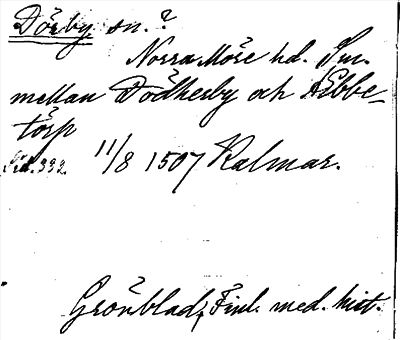 Dörby sn.?
Norra Möre hd. Sm.
mellan Dödherby och Ebbe-
törp
Sid. 332. 11/8 1507 Kalmar.
Grönblad, Finl. med. hist.